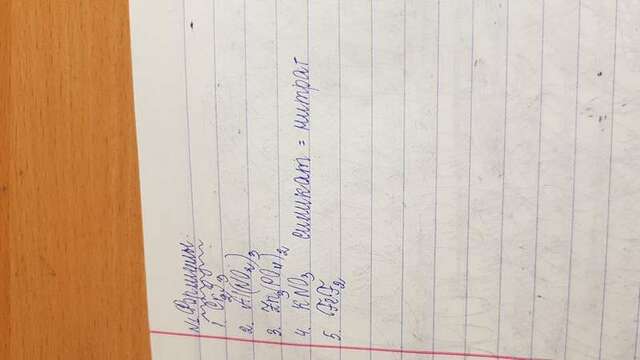 № Формулы:
2. Al(NO2)3
3. Zn3(PO4)2
4. KNO3 силикат = нитрат
5. FeF2